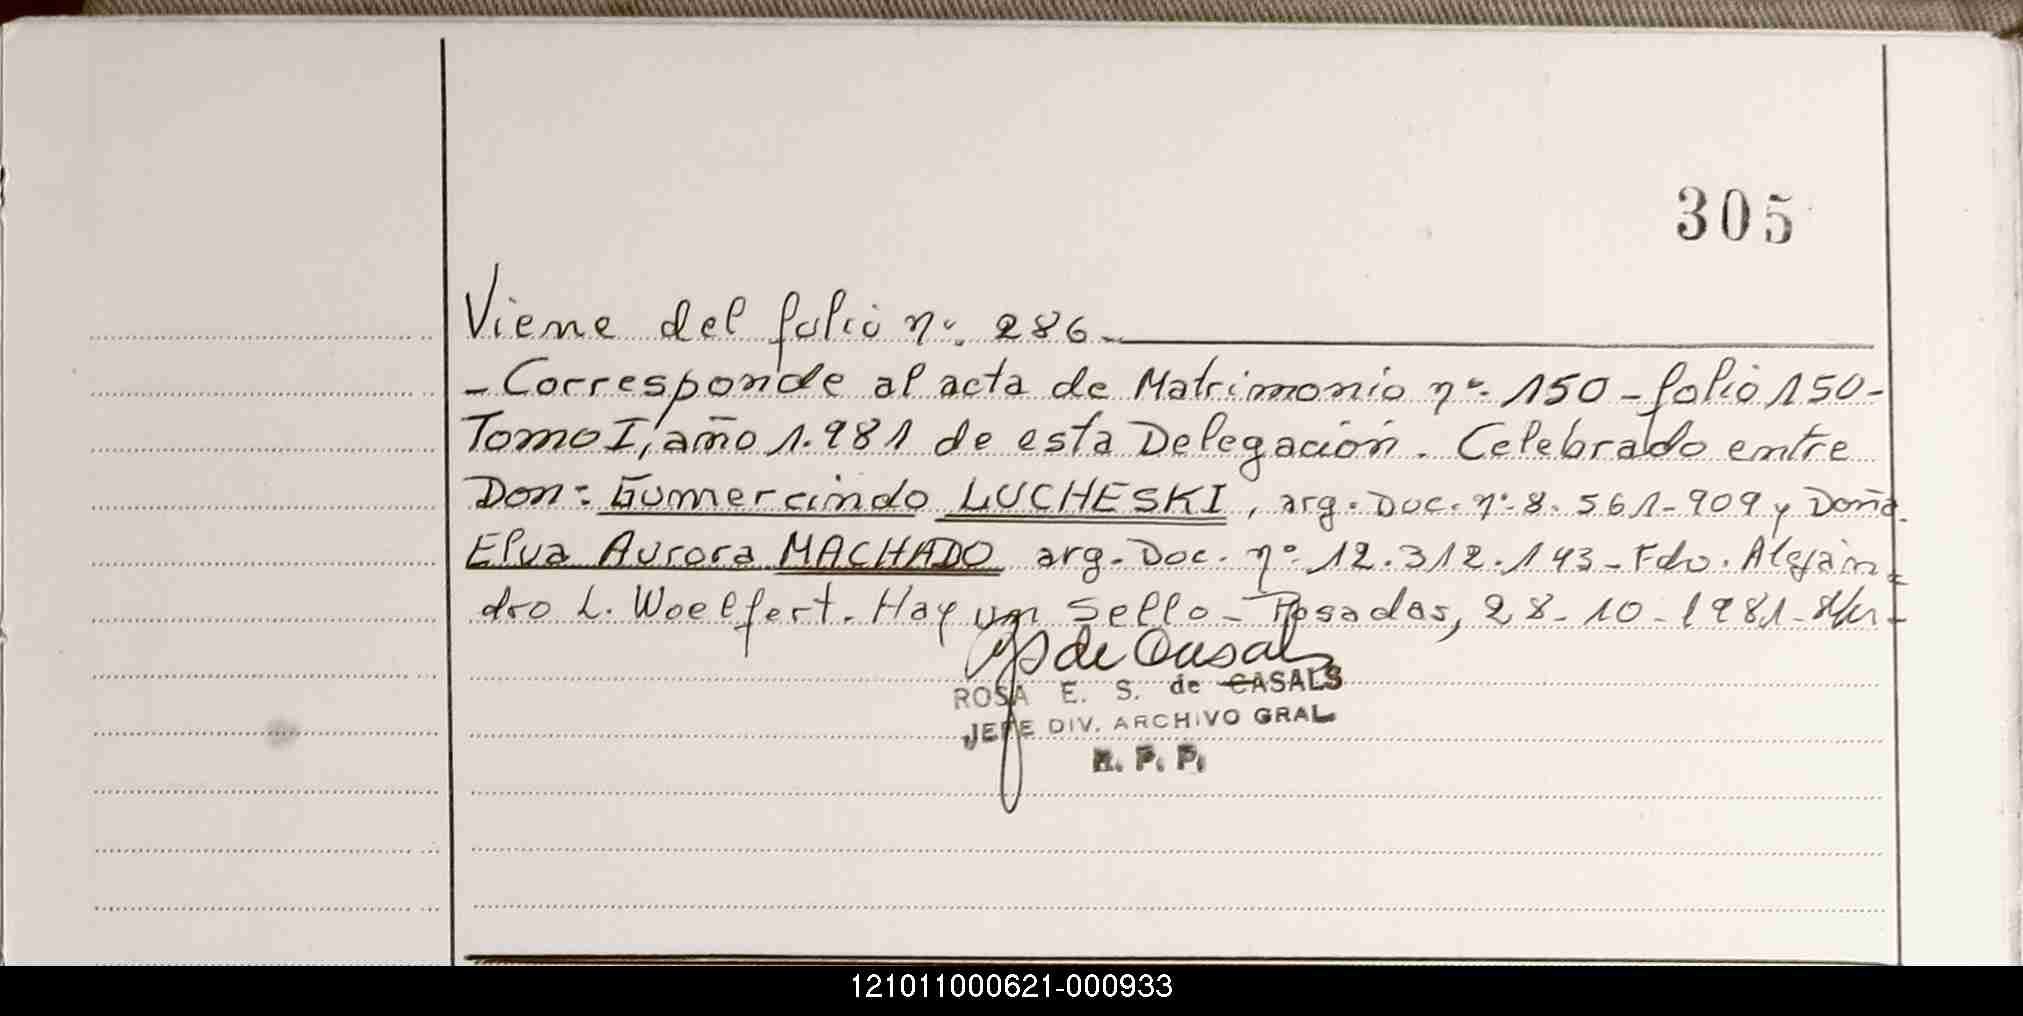 305
Viene del folio nº. 286.
- Corresponde al acta de Matrimonio nº. 150 - folio 150 -
Tomo I, año 1.981 de esta Delegación. Celebrado entre
Don: Gumercindo LUCHESKI, arg. Doc. nº. 8.561-909 y Doña
Elva Aurora MACHADO arg. Doc. nº. 12.312.143 - Fdo. Alejan
dro L. Woelfert. Hay un Sello - Posadas, 28-10-1981 -
de Casals
ROSA E. S. de CASALS
JEFE DIV. ARCHIVO GRAL
R. P. P.
121011000621-000933